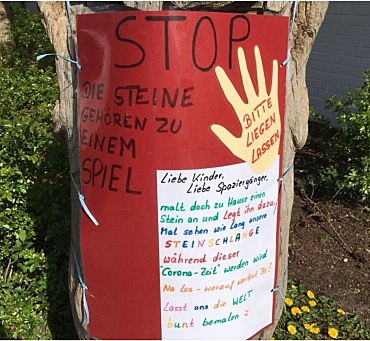 STOP
DIE STEINE
GEHÖREN ZU
EINEM
SPIEL
BITTE
LIEGEN
LASSEN
Liebe Kinder,
Liebe Spaziergänger,
malt doch zu Hause einen
Stein an und legt ihn dazu,
Mal sehen wie lang unsere
STEINSCHLANGE
während dieser
"Corona-Zeit" werden wird
Na los - worauf wartest Du?
Lasst uns die WELT
bunt bemalen